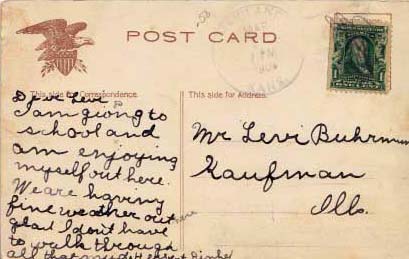 POST CARD
This side for Correspondence.
This side for Address.
Levi
I am going to
school and
am enjoying
myself out here.
We are having
fine weather out
glad I don't have
to walk through
all that mud
Mr Levi Buhrman
Kaufman
Ills.
KANS.
1